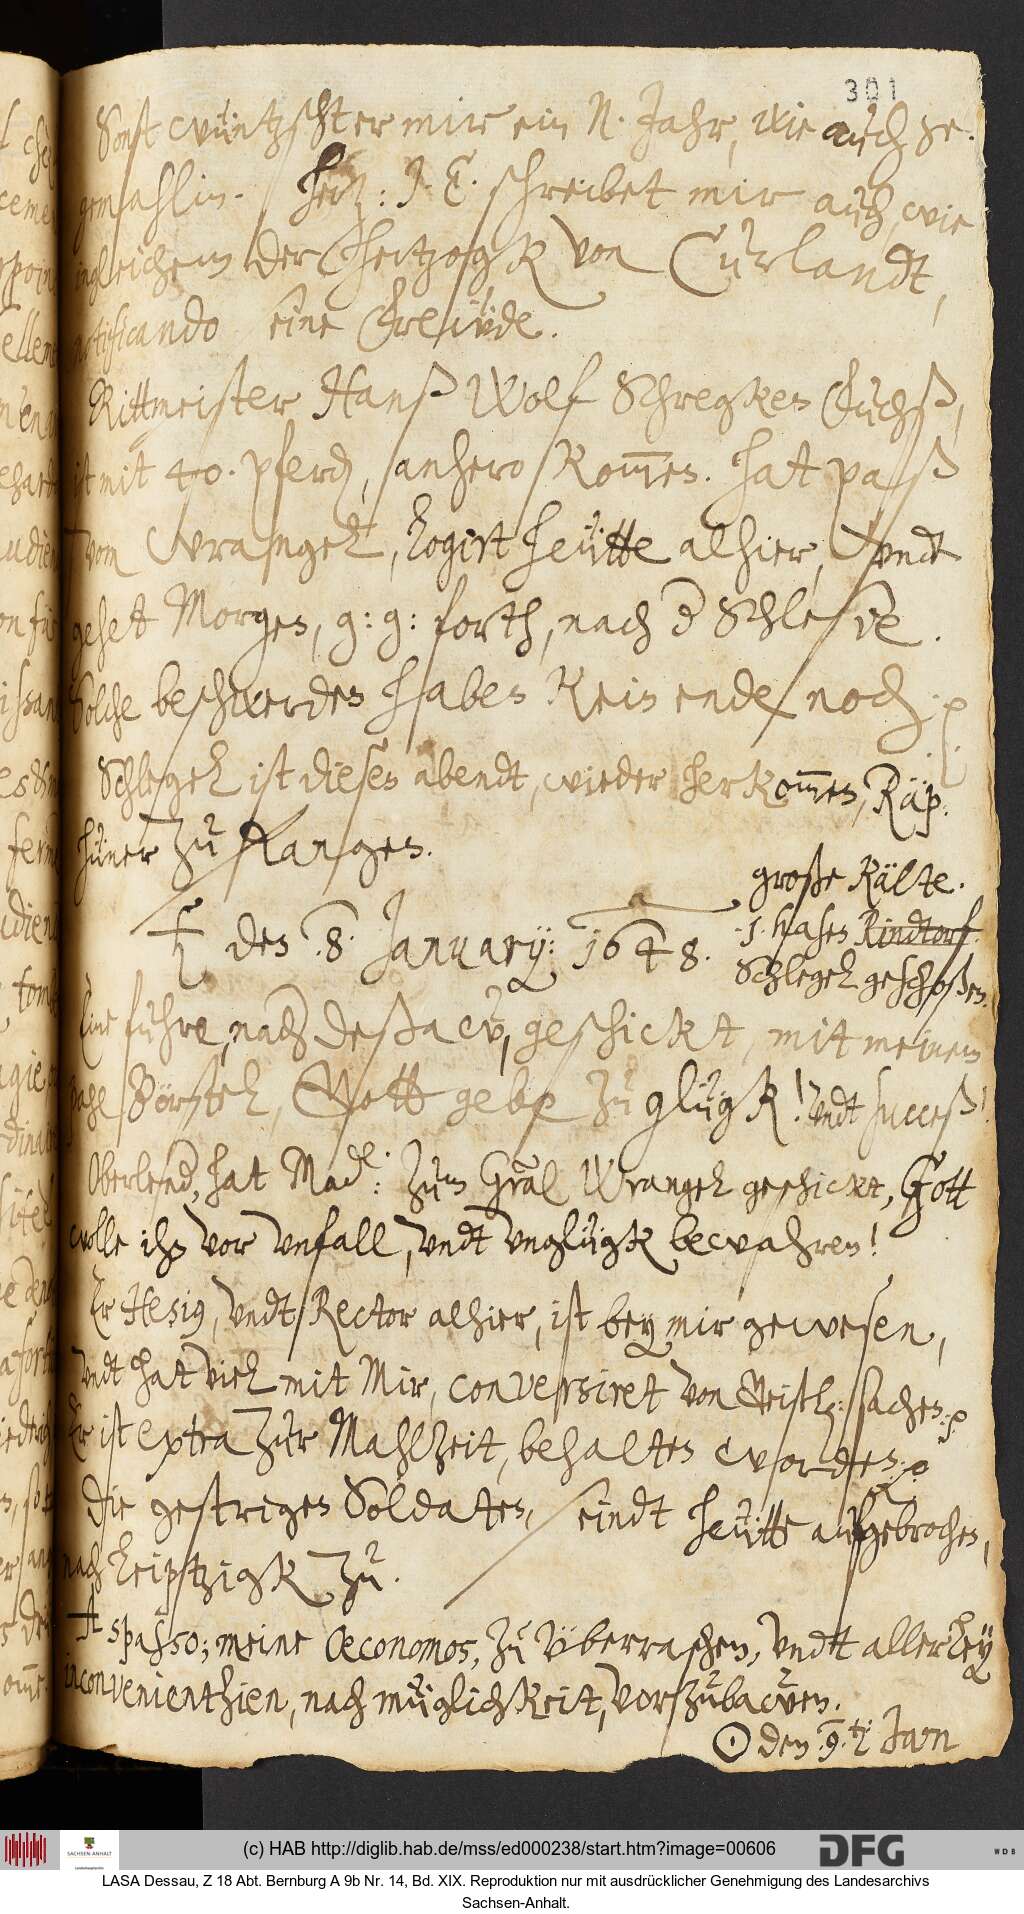 301
Sonst wüntzschter mir ein N. Jahr, wie auch se.
gemahlin. Hertz: J. E. schreibet mir auch, wie
ingleichem der Hertzogk von Cuhrlandt,
notificando seine Freẅde.
Rittmeister Hanß Wolf Schregken Fuchß,
ist mit 40. pferd, anhero kom̅en. hat paß
vom Wrangel, logirt heütte alhier, vndt
gehet Morgen, g: g: forth, nach d Schlesie.
Solche beschwerden haben kein ende noch. p
Schlegel ist diesen abendt, wieder herkom̅en, Räp:
hüner zu fangen.
große Kälte.
♄ den .8. January: 1648.
.1. hasen Rindtorf
Schlegel geschoßen.
Eine fuhre, nach Deßaw, geschickt, mit meinem
Börstel, Gott gebe zu glügk! vndt succeß!
Oberlend, hat Mad: zum Gräl Wrangel geschickt, Gott
wolle ihn vor vnfall, vndt vnglügk bewahren!
Er Hesig, vndt Rector alhier, ist bey mir gewesen,
vndt hat viel mit Mir, conversiret von Geistl: sachen. p
Er ist extra zur Mahlzeit, behalten worden. p
Die gestrigen Soldaten, seindt heütte aufgebrochen,
nach Leiptzigk zu.
A spasso; meine Oeconomos, zu überraschen, vndt allerley
inconvenienthien, nach müglichkeit, vorzubawen.
☉ den .9.ti Jan
(c) HAB http://diglib.hab.de/mss/ed000238/start.htm?image=00606
SACHSEN-ANHALT
DFG
WDB
LASA Dessau, Z 18 Abt. Bernburg A 9b Nr. 14, Bd. XIX. Reproduktion nur mit ausdrücklicher Genehmigung des Landesarchivs
Sachsen-Anhalt.